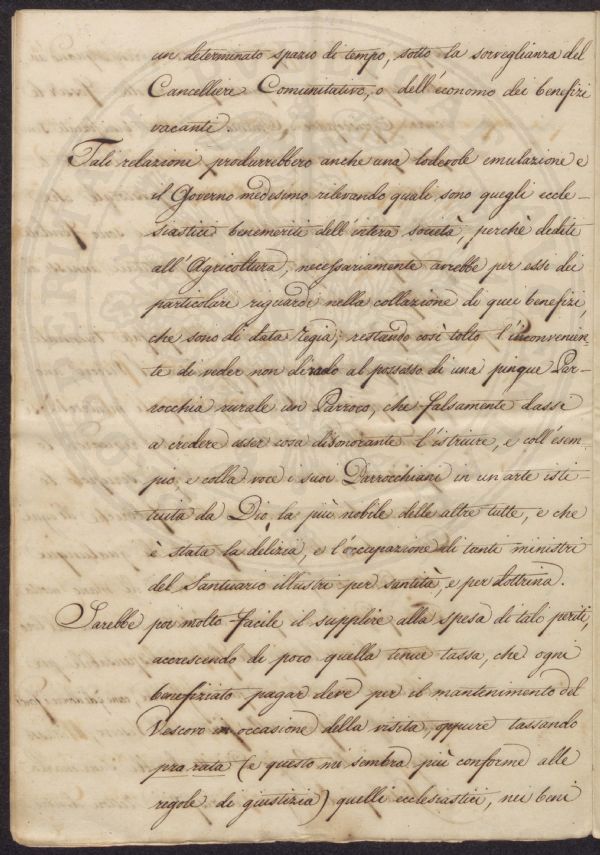 un determinato spazio di tempo, sotto la sorveglianza del
Cancelliere Comunitativo, o dell'economo dei benefizi
vacanti.
Tali relazioni produrrebbero anche una lodevole emulazione e
il Governo medesimo rilevando quali sono quegli eccle-
siastici benemeriti dell'intera società, perchè dediti
all'Agricoltura, necessariamente avrebbe per essi dei
particolari riguardi nella collazione di quei benefizi,
che sono di data regia; restando così tolto l'inconvenien-
te di veder non di rado al possesso di una pingue Par-
rocchia rurale un Parroco, che falsamente dassi
a credere esser cosa disonorante l'istruire, e coll'esem-
pio, e colla voce i suoi Parrocchiani in un arte isti-
tuita da Dio, la più nobile delle altre tutte, e che
è stata la delizia, e l'occupazione di tanti ministri
del Santuario illustri per santità, e per dottrina.
Sarebbe poi molto facile il supplire alla spesa di tali periti
accrescendo di poco quella tenue tassa, che ogni
benefiziato pagar deve per il mantenimento del
Vescovo in occasione della visita, oppure tassando
pro rata (e questo mi sembra più conforme alle
regole di giustizia) quelli ecclesiastici, nei beni